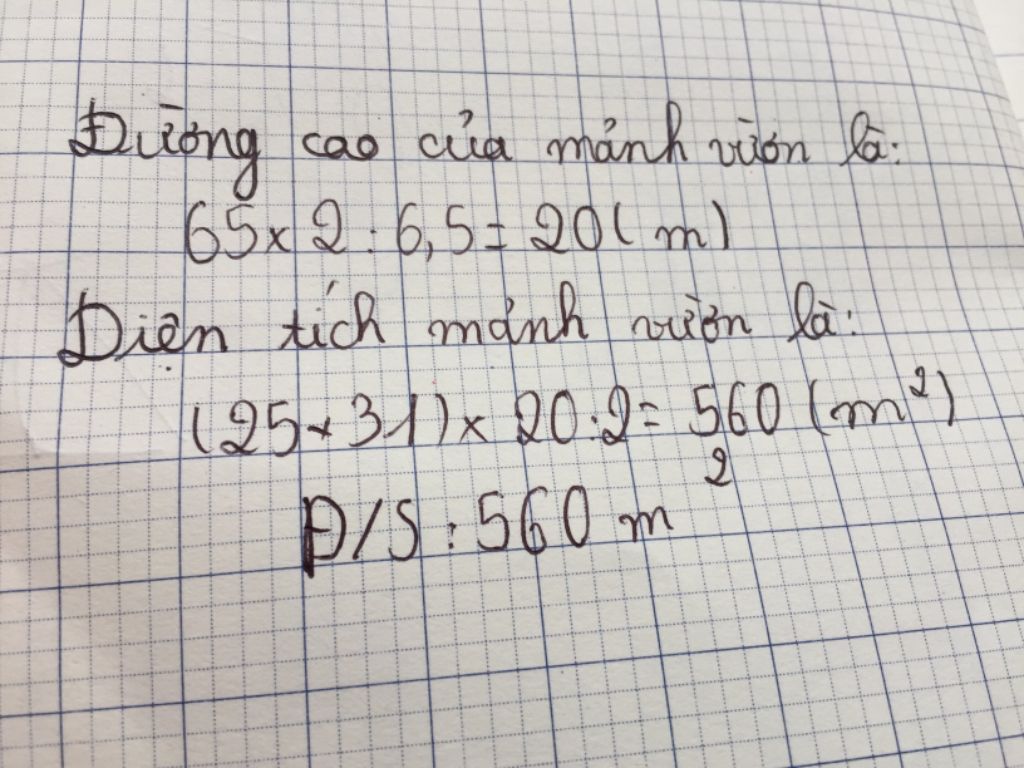 Đường cao của mảnh vườn là:
65 x 2 : 6,5 = 20 ( m )
Diện tích mảnh vườn là:
(25 + 31) x 20 : 2 = 560 (m²)
Đ/S : 560 m²